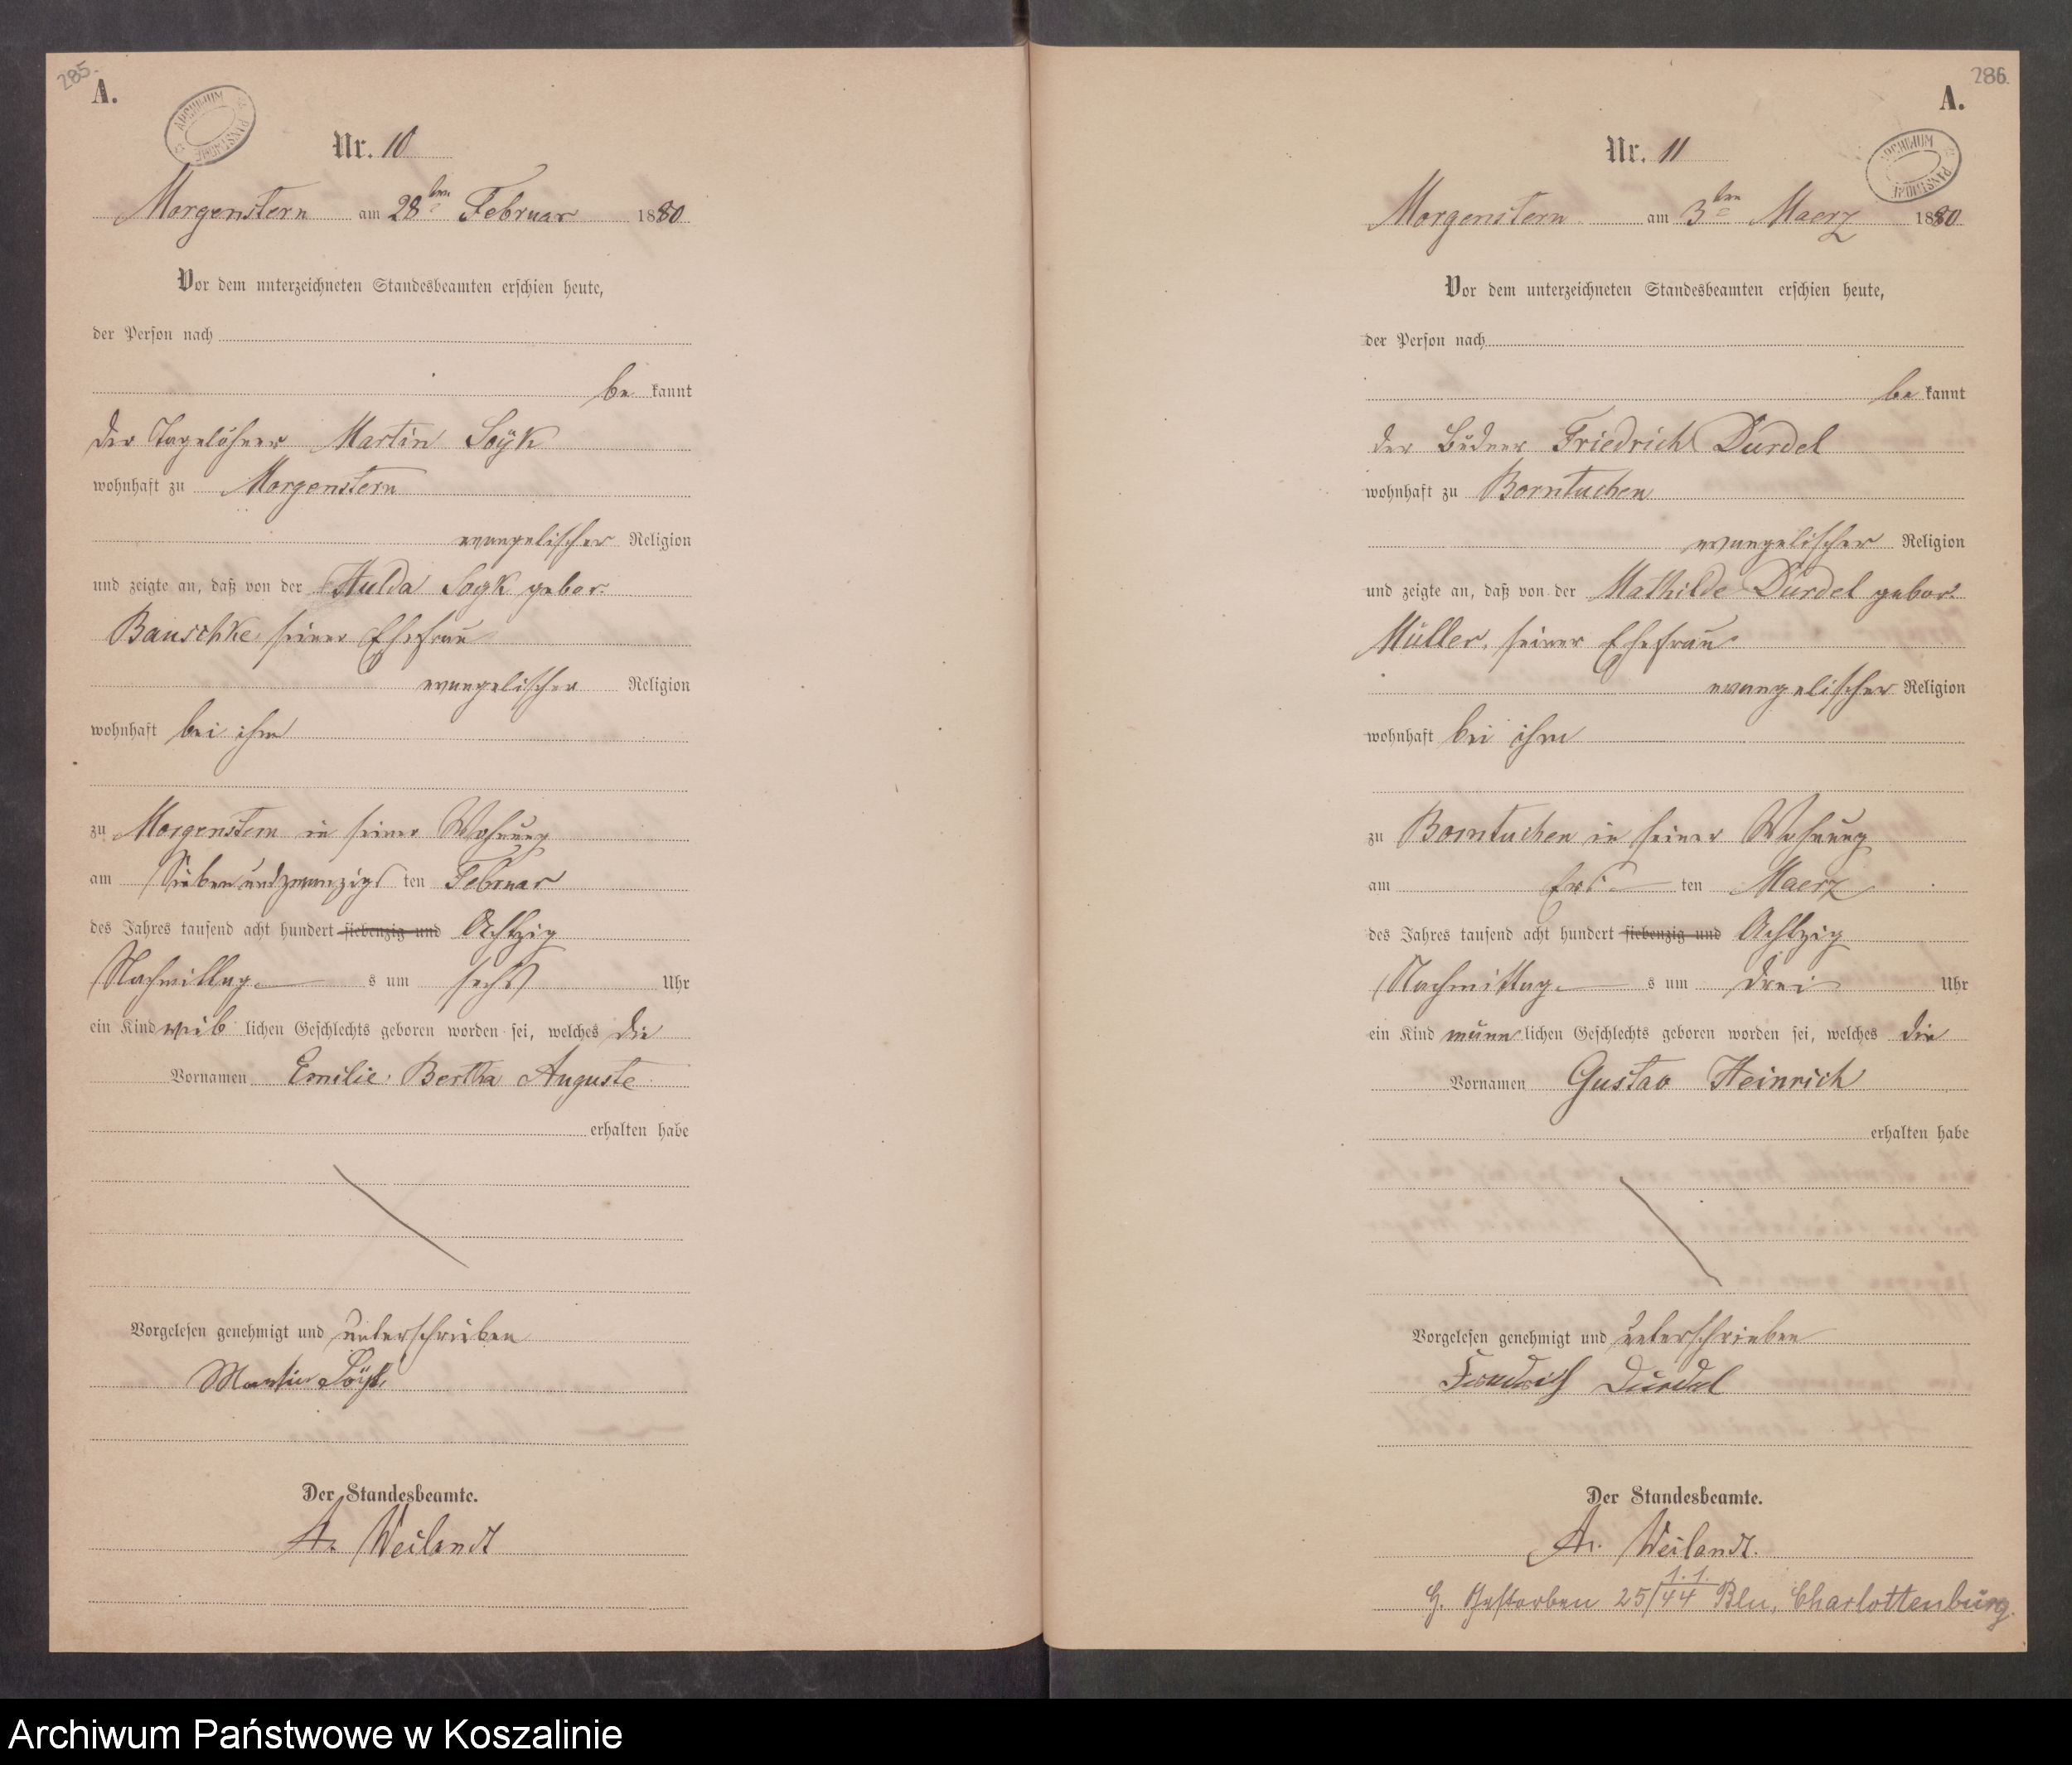 285.
A.
ARCHIWUM PAŃSTWOWE
Nr. 10
Morgenstern am 28ten Februar 1880
Vor dem unterzeichneten Standesbeamten erschien heute,
der Person nach
be kannt
der Tagelöhner Martin Soÿk
wohnhaft zu Morgenstern
evangelischer Religion
und zeigte an, daß von der Hulda Soyk gebor.
Bauschke seiner Ehefrau
evangelischer Religion
wohnhaft bei ihm
zu Morgenstern in seiner Wohnung
am Siebenundzwanzigs ten Februar
des Jahres tausend acht hundert siebenzig und Achtzig
Nachmittag s um sechs Uhr
ein Kind weib lichen Geschlechts geboren worden sei, welches die
Vornamen Emilie Bertha Auguste
erhalten habe
Vorgelesen genehmigt und unterschrieben
Martin Soÿk
Der Standesbeamte.
A. Weilandt
286.
A.
ARCHIWUM PAŃSTWOWE
Nr. 11
Morgenstern am 3ten Maerz 1880
Vor dem unterzeichneten Standesbeamten erschien heute,
der Person nach
be kannt
der Büdner Friedrich Durdel
wohnhaft zu Borntuchen
evangelischer Religion
und zeigte an, daß von der Mathilde Durdel gebor.
Müller, seiner Ehefrau
evangelischer Religion
wohnhaft bei ihm
zu Borntuchen in seiner Wohnung
am Ers ten Maerz
des Jahres tausend acht hundert siebenzig und Achtzig
Nachmittag s um drei Uhr
ein Kind männ lichen Geschlechts geboren worden sei, welches die
Vornamen Gustav Heinrich
erhalten habe
Vorgelesen genehmigt und unterschrieben
Friedrich Durdel
Der Standesbeamte.
A. Weilandt.
G. Gestorben 25/1.1.44 Bln, Charlottenburg.
Archiwum Państwowe w Koszalinie